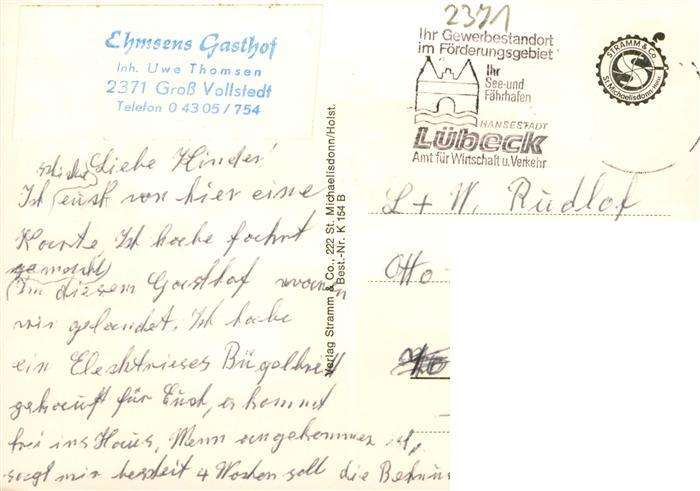 Ehmsens Gasthof
Inh. Uwe Thomsen
2371 Groß Vollstedt
Telefon 0 43 05 / 754
2371
Ihr Gewerbestandort
im Förderungsgebiet
Ihr
See-und
Fährhafen
HANSESTADT
LÜbecK
Amt für Wirtschaft u. Verkehr
STRAMM & Co.
St. Michaelisdonn/Holst.
schicke
Liebe Kinder!
Ich euch von hier eine
Karte. Ich habe fahrt
gemacht
In diesem Gasthof waren
wir gelandet. Ich habe
ein Elecktrieses Bügelbrett
gekauft für Euch, es kommt
frei ins Haus, Wenn angekommen ist,
sagt mir bescheit 4 Wochen soll die
Verlag Stramm & Co., 222 St. Michaelisdonn/Holst.
Best.-Nr. K 154 B
L + W. Rudlof
Otto